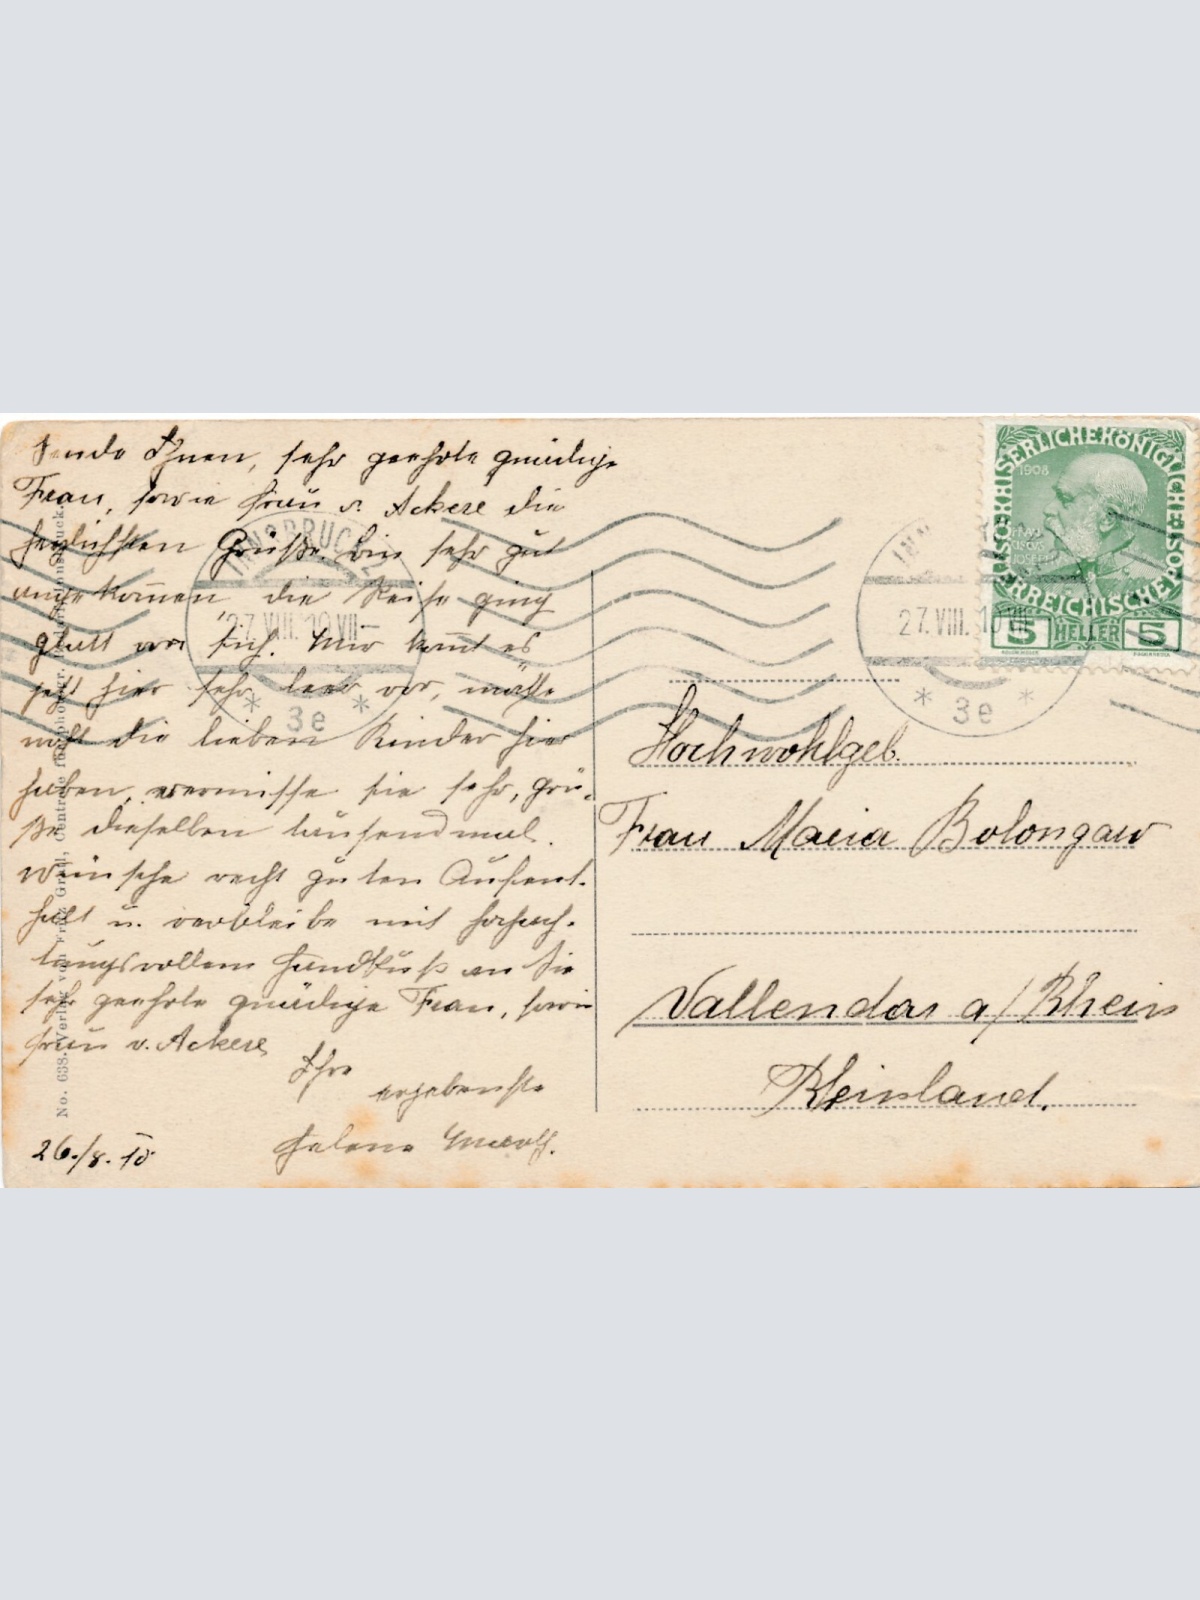 Sende Ihnen, sehr geehrte gnädige
Frau, sowie Frau v. Ackere die
herzlichsten Grüße. bin sehr gut
angekom̅en die Reise ging
glatt vor sich. Mir kom̅t es
jetzt hier sehr leer vor, möchte
nicht die lieben Kinder hier
haben, vermisse sie sehr, grü-
ße dieselben tausendmal.
Wünsche recht guten Aufent-
halt u. verbleibe mit hochach-
tungsvollem Handkuß an Sie
sehr geehrte gnädige Frau, sowie
Frau v. Ackere
Ihre
ergebenste
Helene
26./8. 10
No. 638. Verlag von Fritz Gratl, Innsbruck.
INNSBRUCK 2
27. VIII. 10 VII
* 3e *
27. VIII. 10 VII
* 3e *
KAISERLICHE KÖNIGLICHE ÖSTERREICHISCHE
1908
5 HELLER 5
Hochwohlgeb.
Frau Maria Bolongaro
Vallendar a/Rhein
Rheinland.